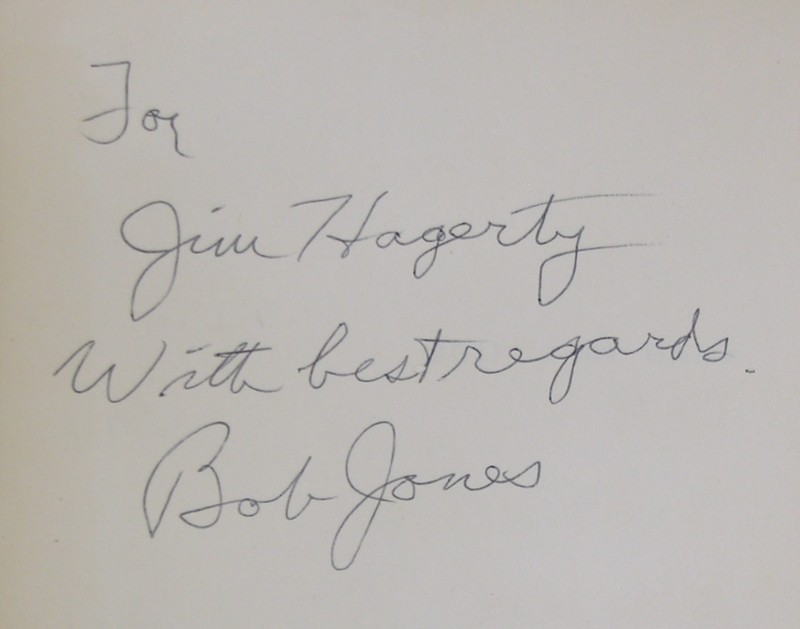 For
Jim Hagerty
With best regards.
Bob Jones